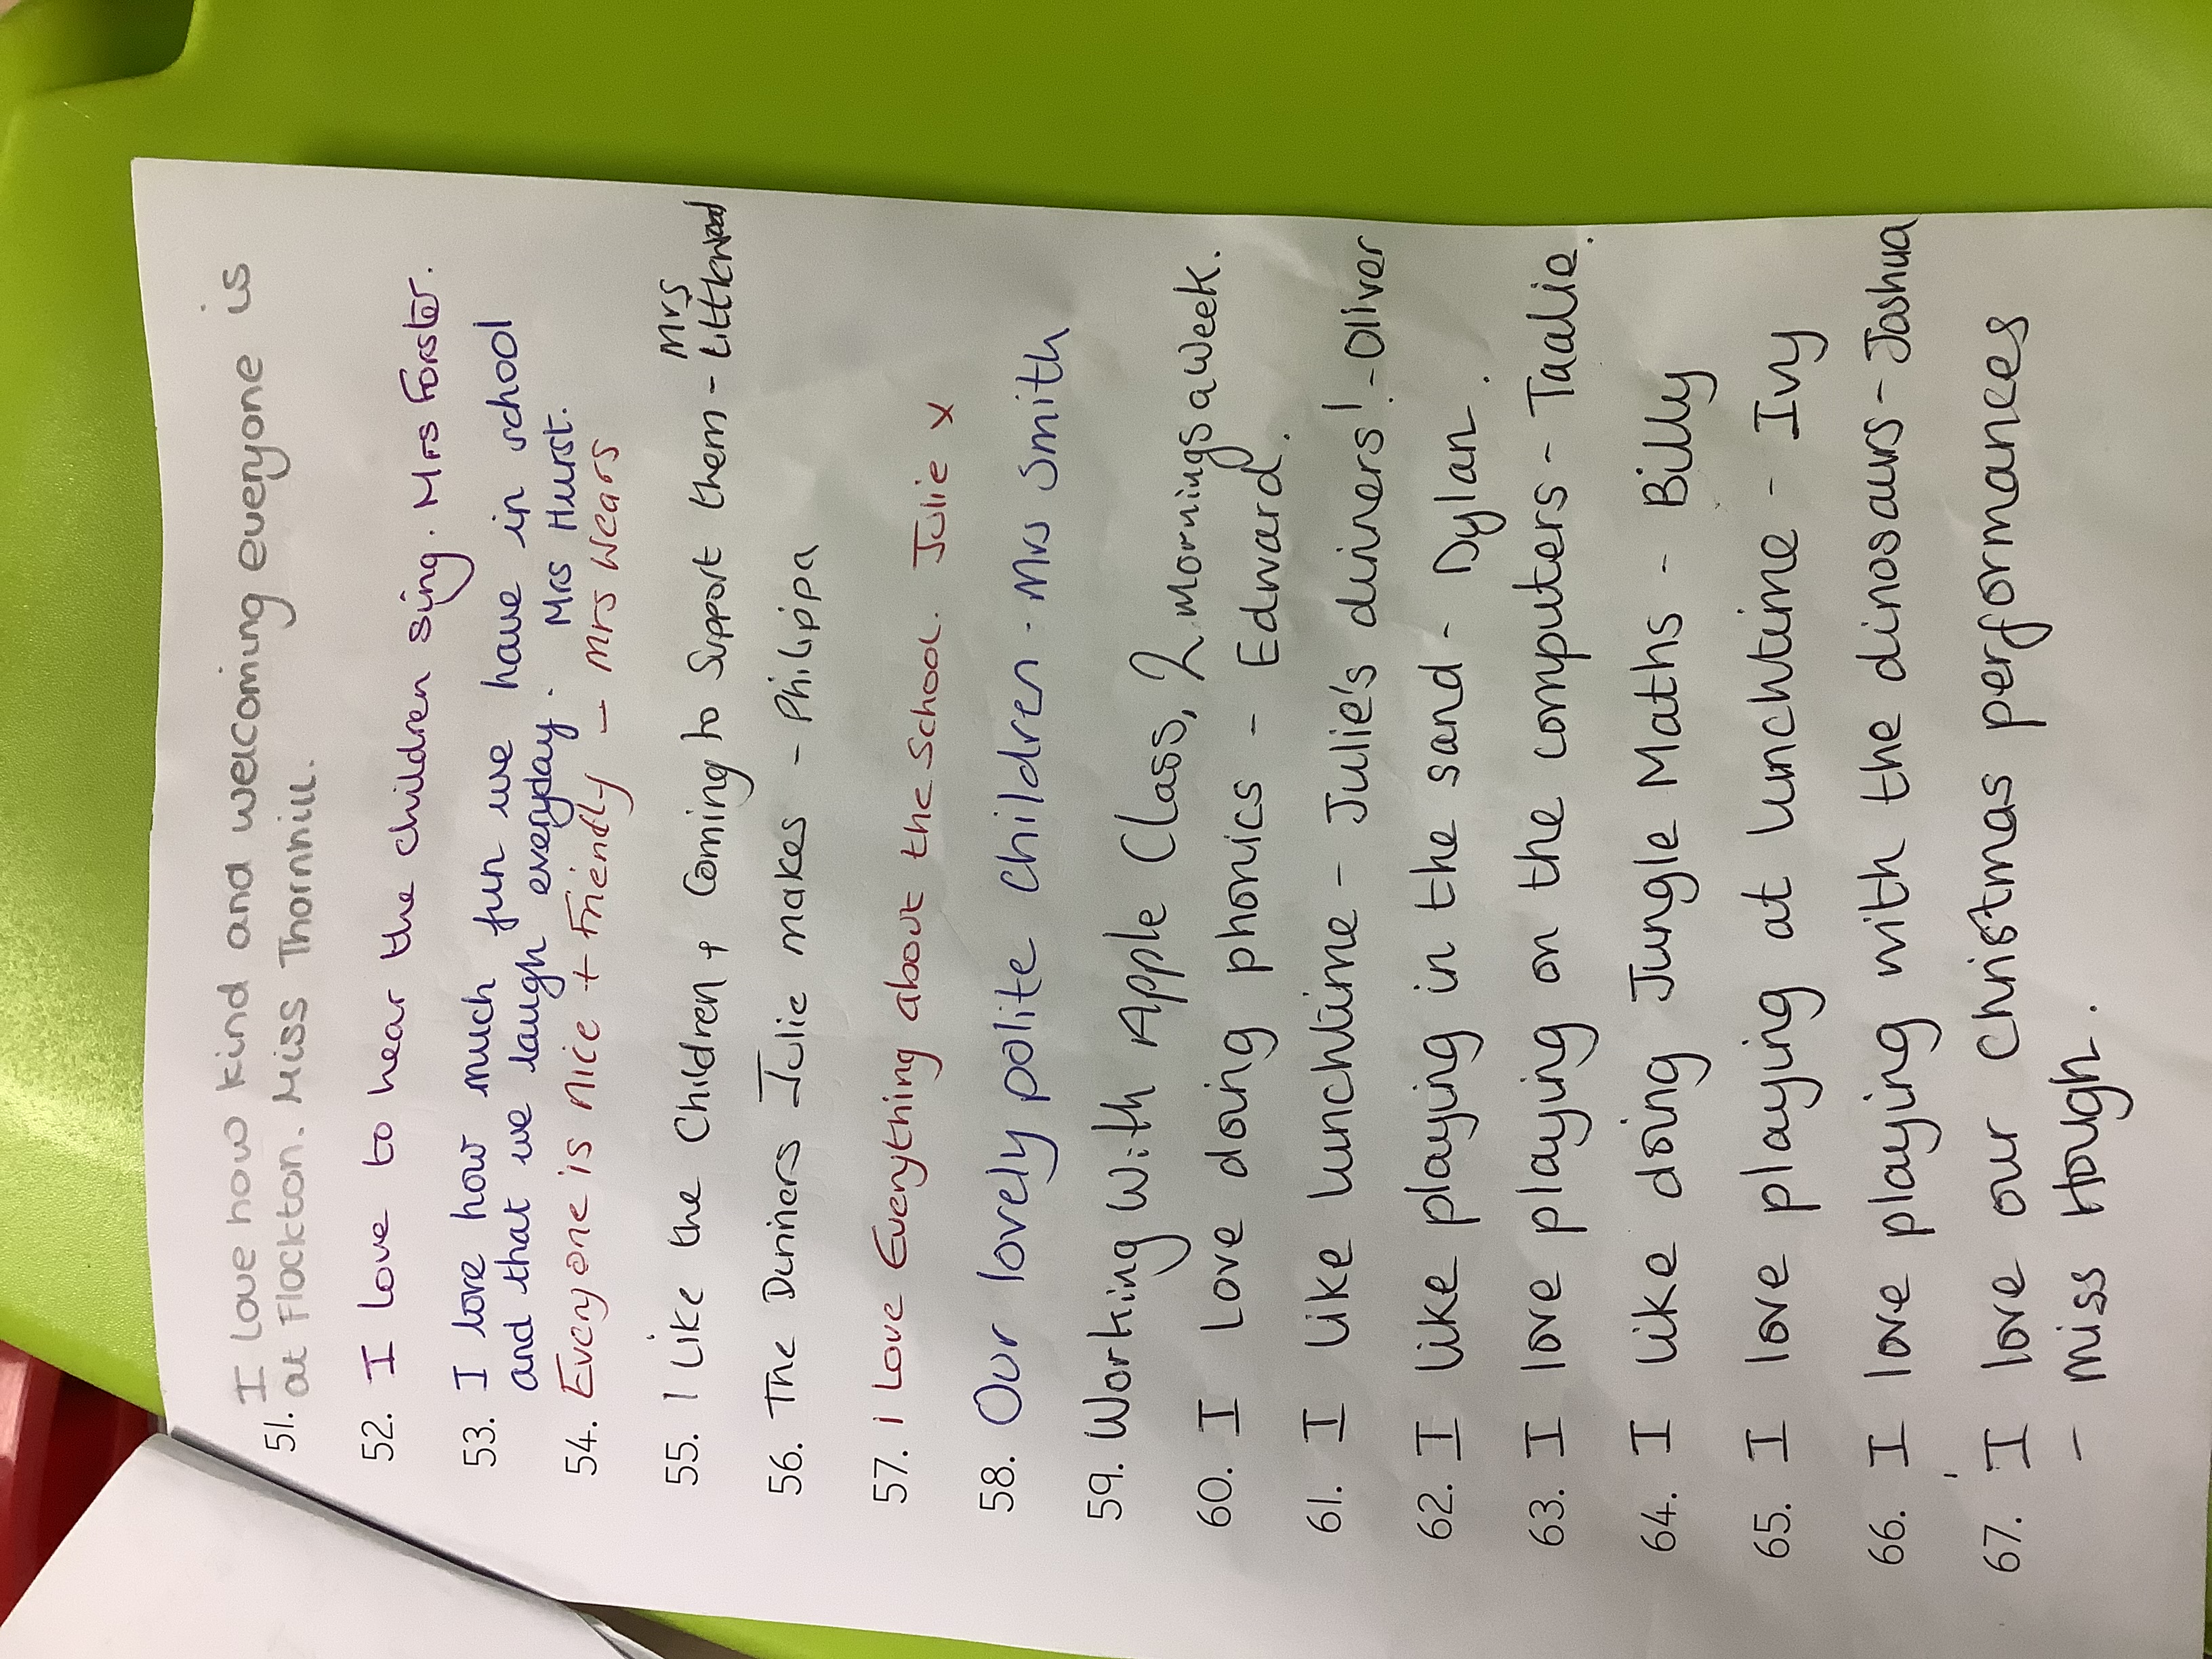 51. I love how kind and welcoming everyone is
at Flockton. Miss Thornhill.
52. I love to hear the children sing. Mrs Forster.
53. I love how much fun we have in school
and that we laugh everyday. Mrs Hurst.
54. Everyone is nice + Friendly - Mrs Wears
55. I Like the Children + Coming to Support them - Mrs Littlewood
56. The Dinners Julie makes - Philippa
57. I Love Everything about the School. Julie x
58. Our lovely polite children - Mrs Smith
59. Working With Apple Class, 2 Mornings a week.
60. I love doing phonics - Edward.
61. I like lunchtime - Julie's dinners! - Oliver
62. I like playing in the sand - Dylan.
63. I love playing on the computers - Taalie.
64. I like doing Jungle Maths - Billy
65. I love playing at lunchtime - Ivy
66. I love playing with the dinosaurs - Joshua
67. I love our Christmas performances
- Miss Hough.